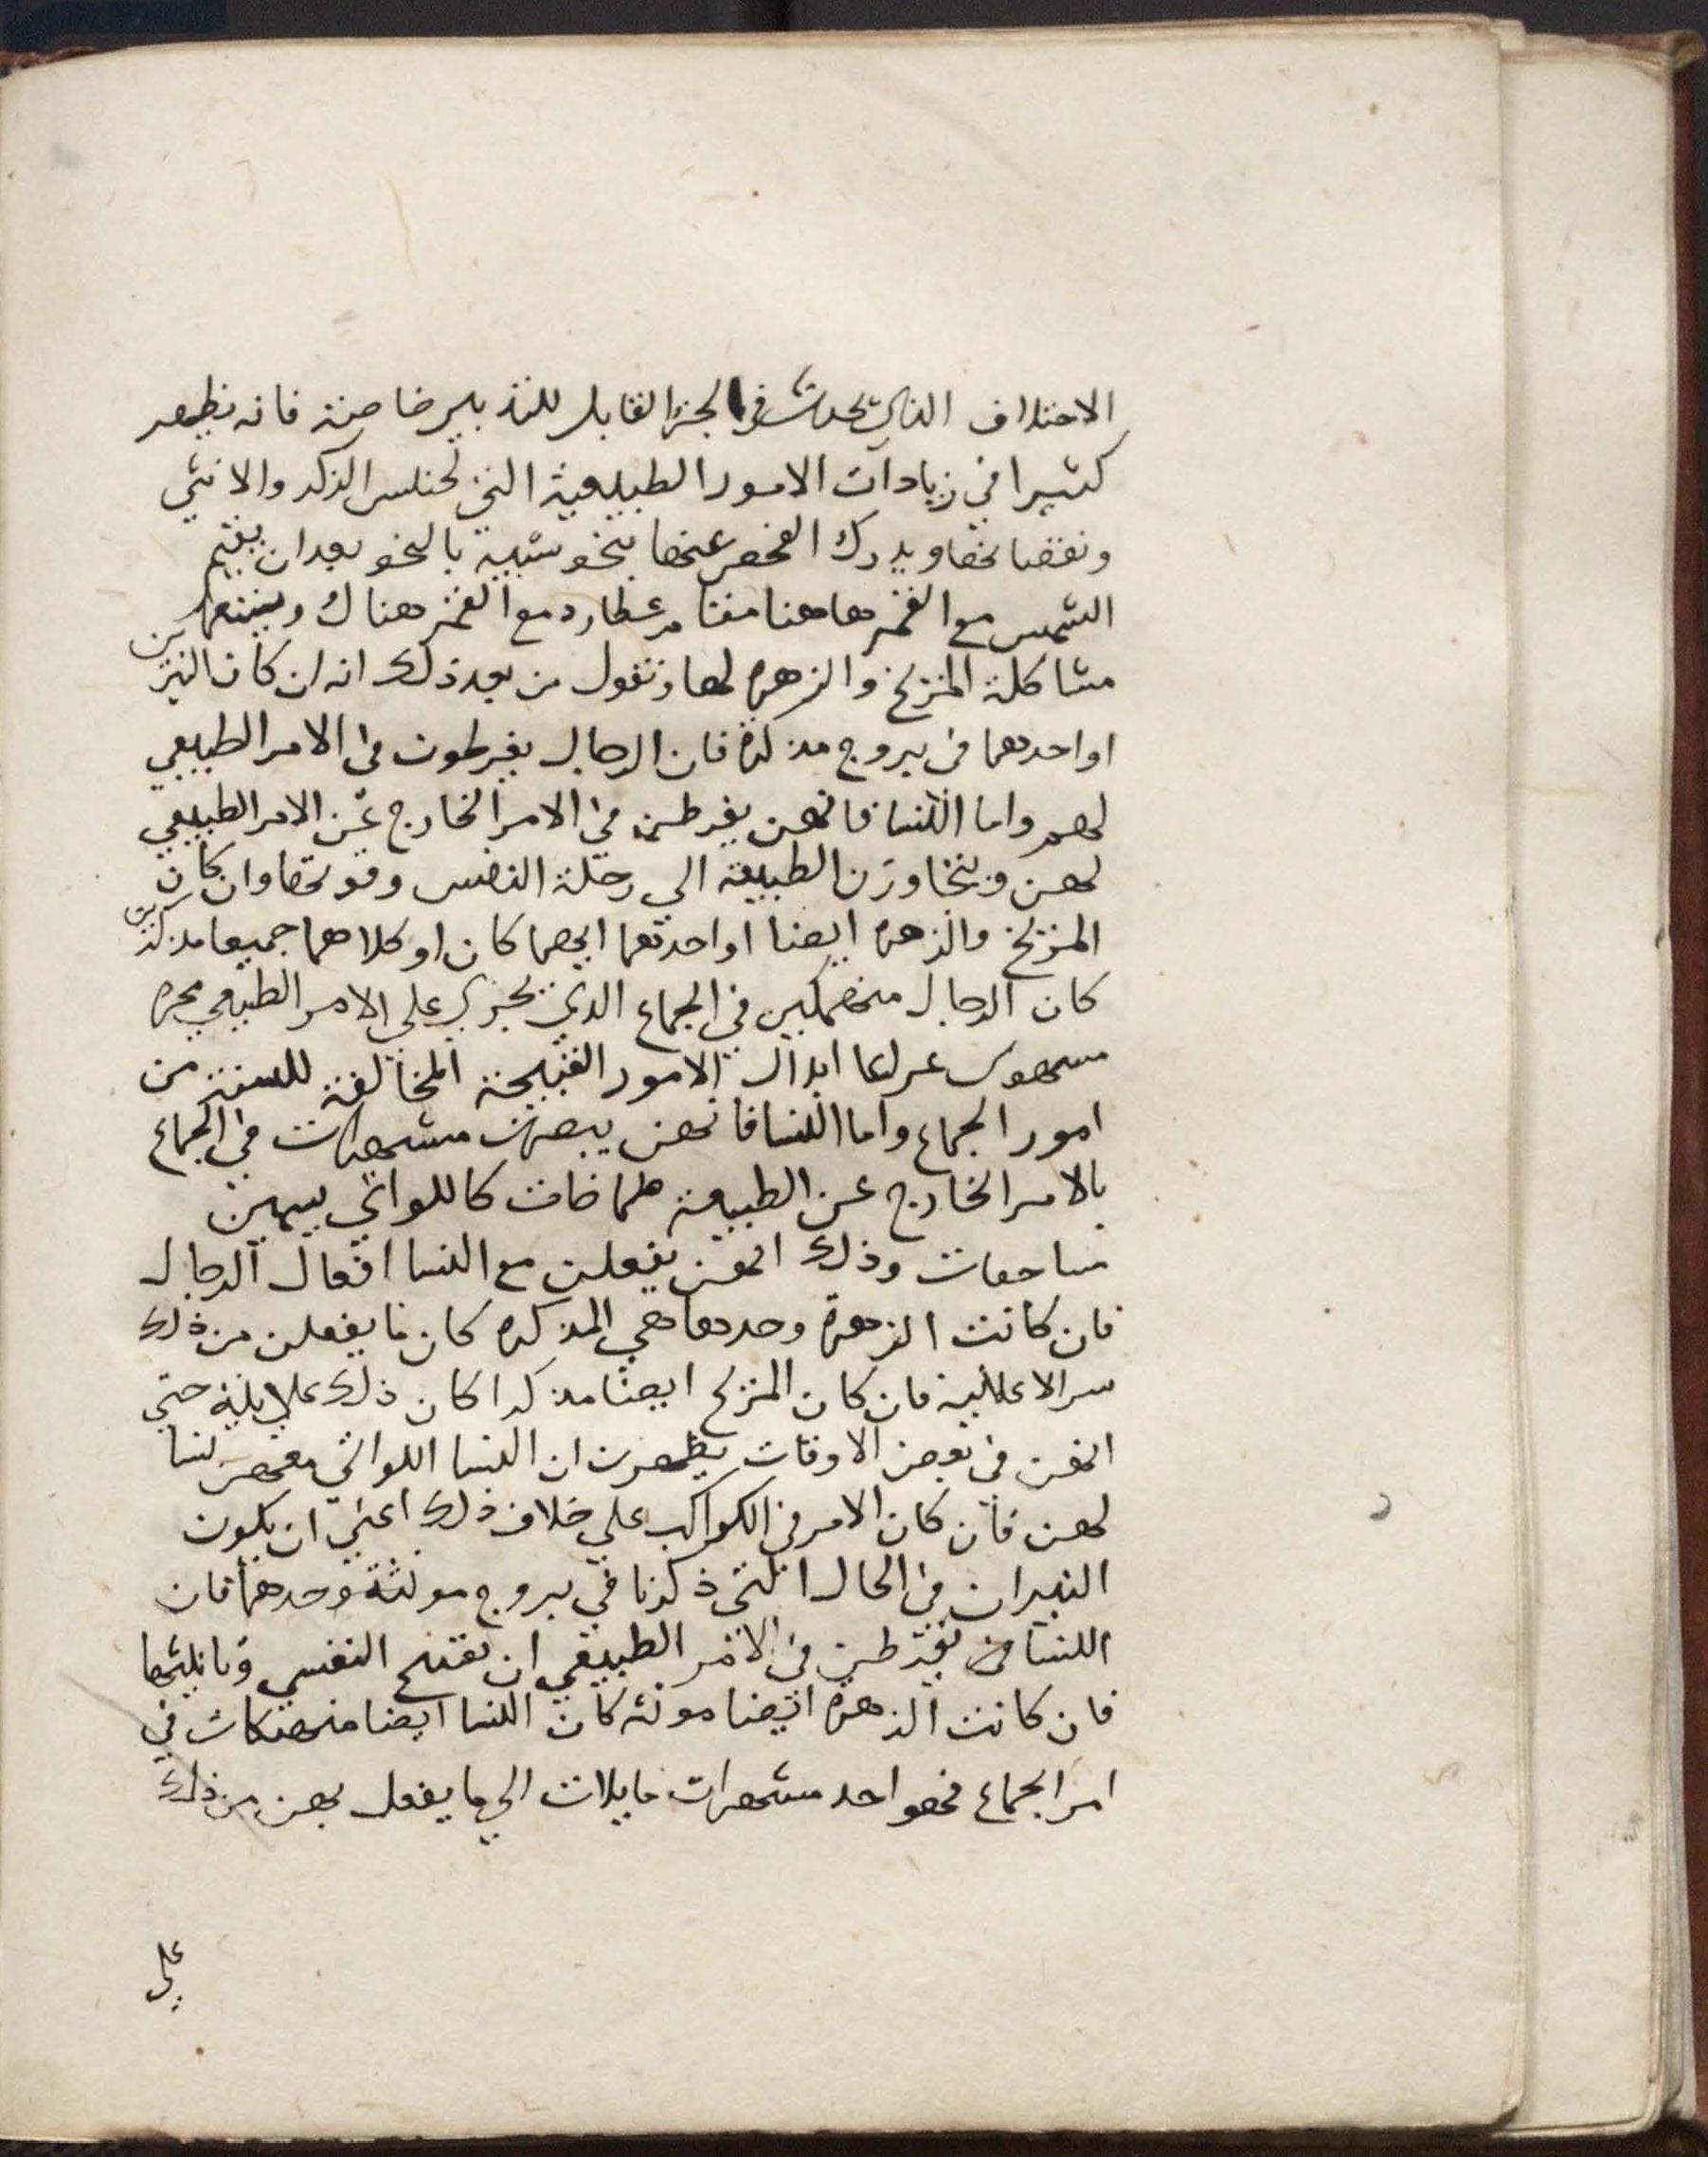 الاختلاف الذي يحدث في الجزء القابل للتدبير خاصة فانه يظهر
كثيرا في زيادات الامور الطبيعية التي لجنس الذكر والانثي
ونقصانها ويدرك الفحص عنها بنحو شبيه بالنحو بعد ان يقيم
الشمس مع القمر هاهنا مقام عطارد مع القمر هناك وبينهما
مشاكلة المريخ والزهره لها ونقول من بعد ذلك انه ان كان النيرين
او احدهما في بروج مذكرة فان الرجال يفرطون في الامر الطبيعي
لهم واما النسا فانهن يفرطن في الامر الخارج عن الامر الطبيعي
لهن ويتجاوزن الطبيعة الي رجلة النفس وقوتها وان كان
المريخ والزهره ايضا او احدهما ايهما كان او كلاهما جميعا مذكرين
كان الرجال منهمكين في الجماع الذي يجري علي الامر الطبيعي مجره
الامور القبيحة المخالفة للسنة من
امور الجماع واما النسا فانهن يصرن مشتهرات في الجماع
بالامر الخارج عن الطبيعة طماحات كاللواتي يسمين
ساحقات وذلك انهن يفعلن مع النسا افعال الرجال
فان كانت الزهرة وحدها هي المذكره كان ما يفعلن من ذلك
سرا لا علانية فان كان المريخ ايضا مذكرا كان ذلك علانية حتي
انهن في بعض الاوقات يظهرن ان النسا اللواتي معهن نسا
لهن فان كان الامر في الكواكب علي خلاف ذلك اعني ان يكون
النيران في الحال التي ذكرنا في بروج مونثة وحدهما فان
النسا يفرطن في الامر الطبيعي النفس
فان كانت الزهرة ايضا مونثه كان النسا ايضا منهتكات في
امر الجماع فهو احد مشتهرات مايلات الي ما يفعل بهن من ذلك
علي